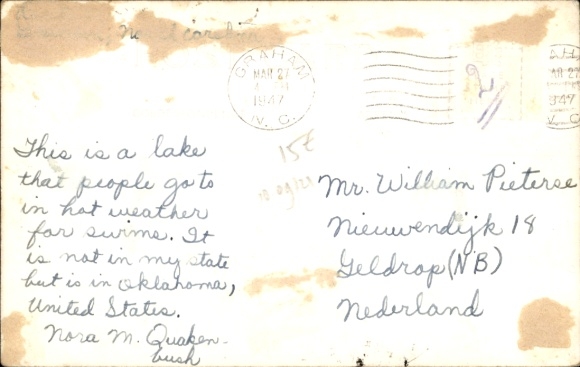 North Carolina
GRAHAM
MAR 27
1947
N. C.
2
15¢
This is a lake
that people go to
in hot weather
for swims. It
is not in my state
but is in Oklahoma,
United States.
Nora M. Quaken-
bush
Mr. William Pieterse
Nieuwendijk 18
Geldrop (NB)
Nederland
AH
AR 27
1947
V. C.